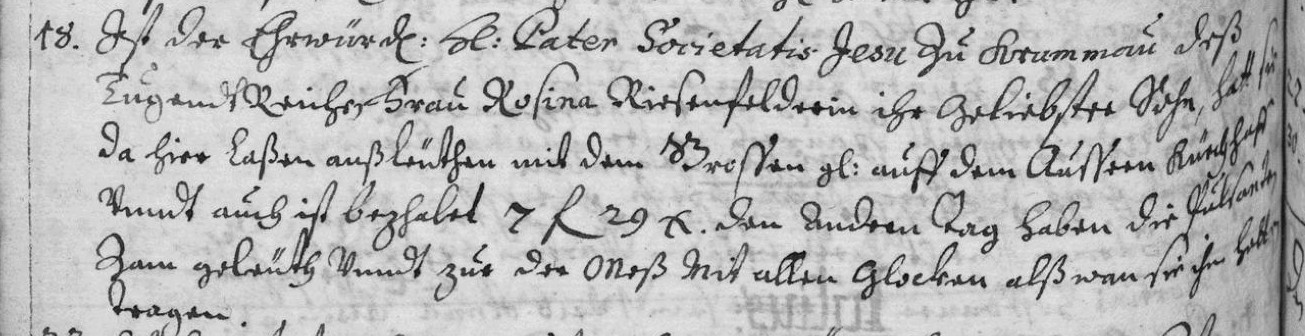 18. Ist der Ehrwürd: H: Pater Societatis Jesu Zu Krummau deß
Tugendt Reichen Frau Rosina Riesenfelderin ihr Geliebster Sohn, hatt sie
da hier Laßen außleüthen mit dem Grossen gl: auff dem Aussern Kürchhoff
Vnndt auch ist bezhalet 7 f 29 x. den Andern Tag haben die Pulsanten
Zam geleüth Vnndt zur der Meß Mit allen Glocken alß wan sie ihn hetten
tragen.